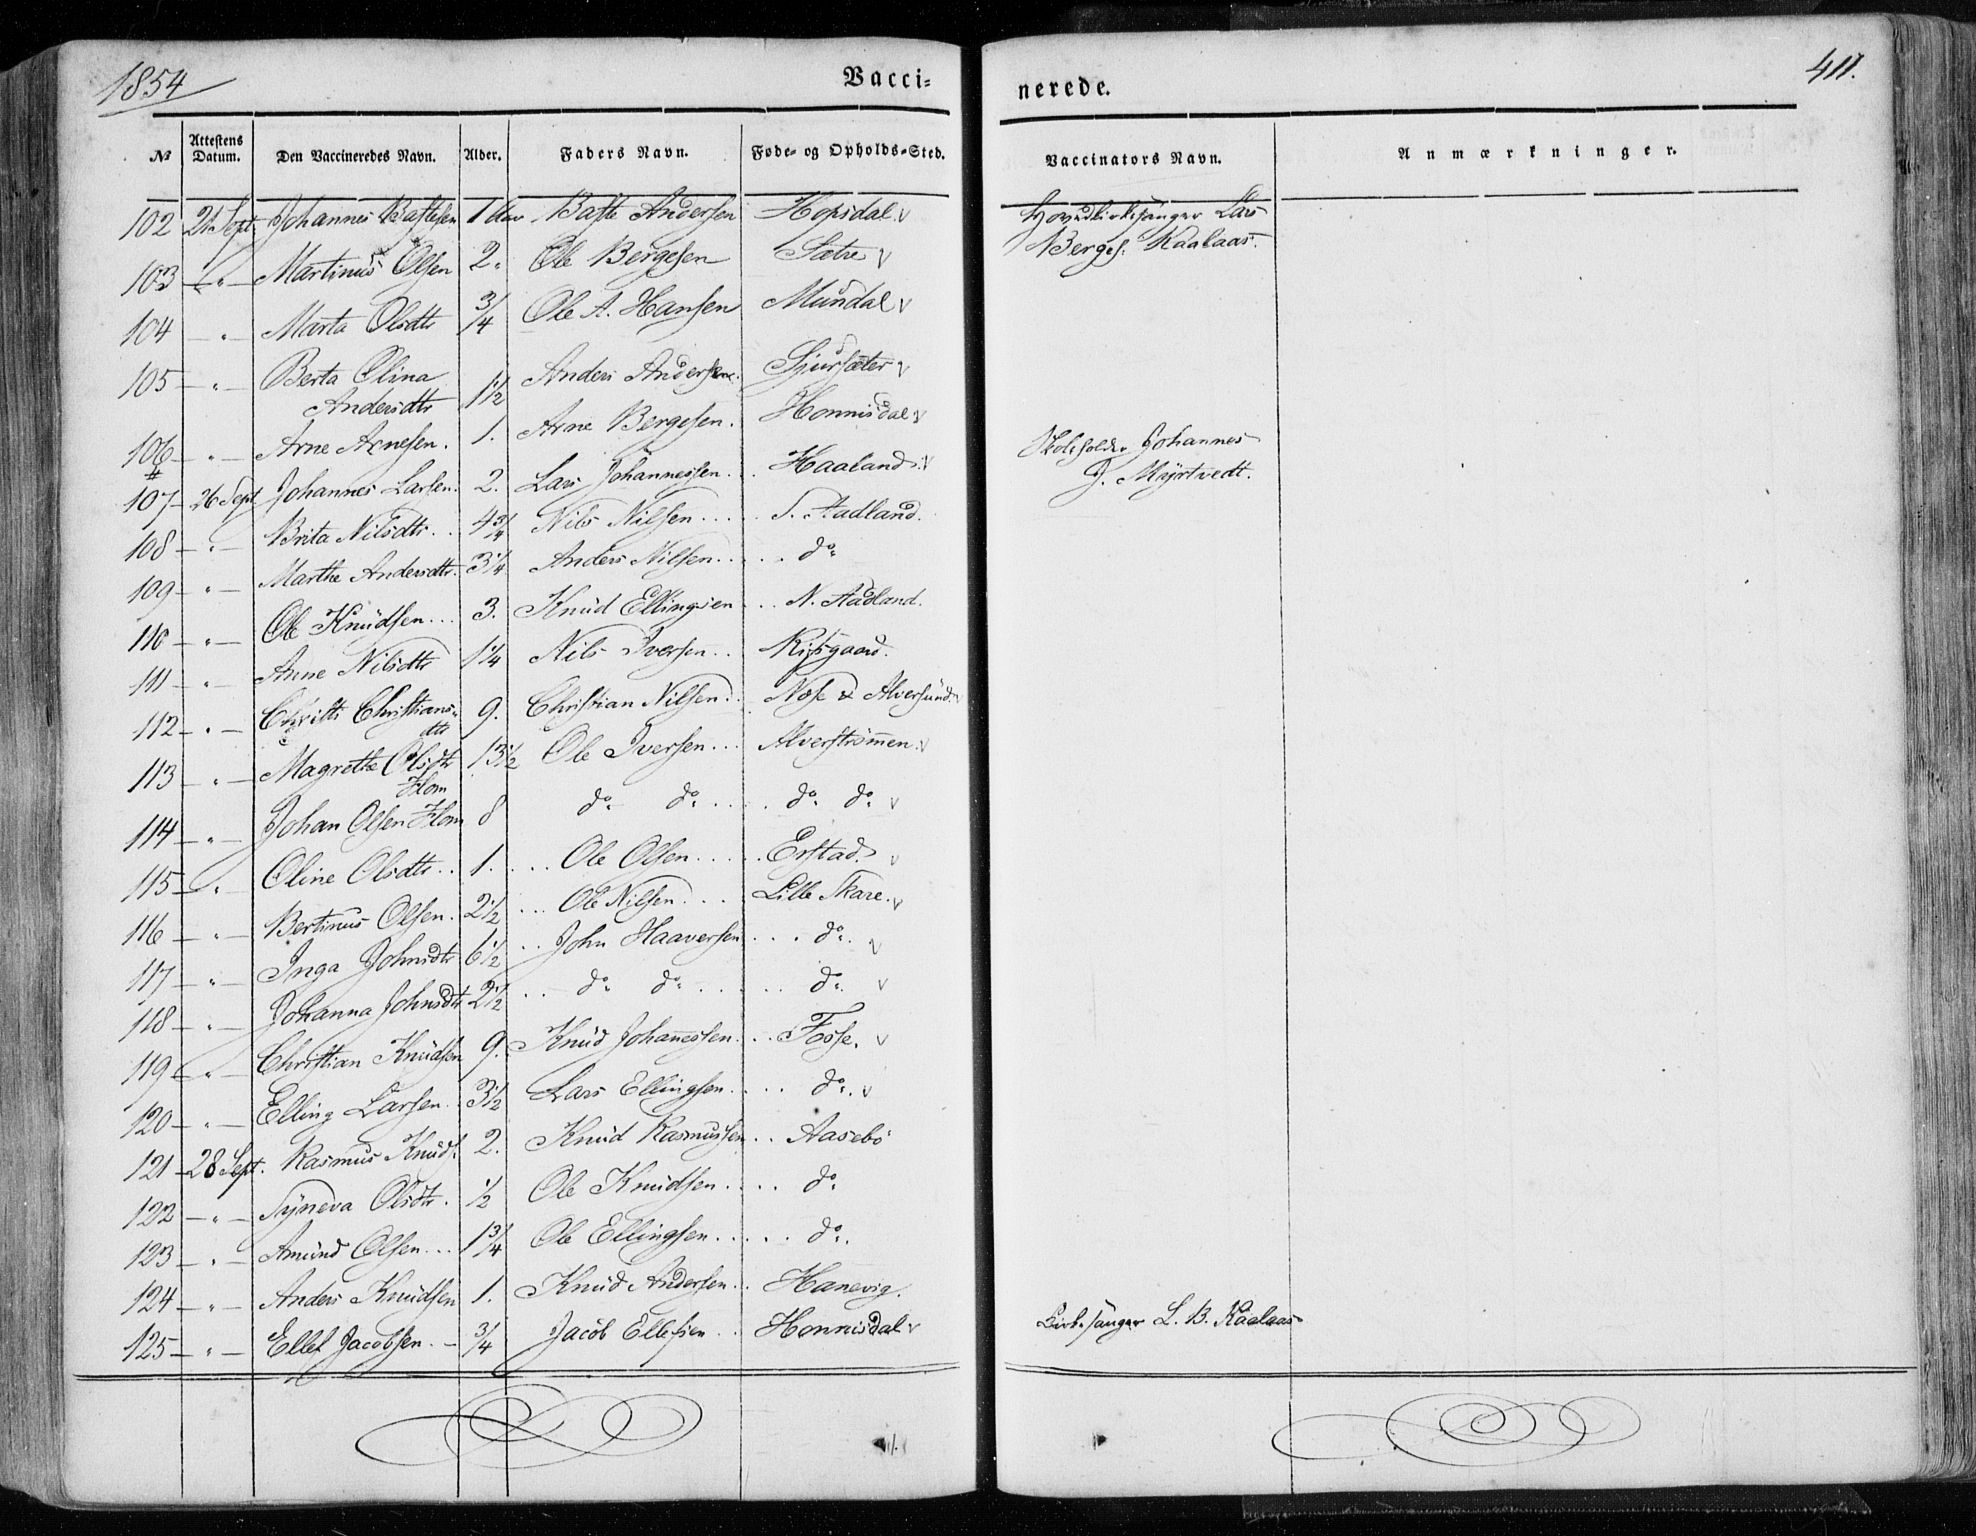 1854
Vacci-
nerede.
411.
No
Attestens Datum.
Den Vaccineredes Navn.
Alder.
Faders Navn.
Føde- og Opholds-Sted.
Vaccinators Navn.
Anmærkninger.
102 21 Sept Johannes Bastesen 1 Aar Baste Andersen Hopsdal v Hovedkirkesanger Lars
103 — " — Martinus Olsen 2. Ole Bergesen Sætre v Berges. Kaalaas.
104 — " — Marta Olsdtr 3/4 Ole A. Hansen Mundal v
105 — " — Berta Olina 1 1/2 Anders Andersen. Sjursæter v
Andersdtr
106 — " — Arne Arnesen. 1. Arne Bergesen. Honnisdal v
# Skoleholder Johannes
107 — 26 Sept Johannes Larsen. 2. Lars Johannessen. . Haaland. v J. Myrtvedt.
108 — " — Brita Nilsdtr. . 4 3/4 Nils Nilsen . . . . S. Aadland.
109 — " — Marthe Andersdtr. 3 1/4 Anders Nilsen . . . . . do
110 — " — Ole Knüdsen . . . 3. Knüd Ellingsen . . N. Aadland.
111 — " — Anne Nilsdtr 1 1/4 Nils Iversen . . Risgaard.
112 — " — Christi Christians- 9. Christian Nilsen . . Nose & Alversünd. v
dtr
113 — " — Magrethe Olsdtr 13 1/2 Ole Iversen . . . Alverstrømmen. v
Flom
114 — " — Johan Olsen Flom 8 do do . . . . do do v
115 — " — Oline Olsdtr . . 1. . . . Ole Olsen . . . . . Erstad. v
116 — " — Bertinus Olsen. 2 1/2 . . . Ole Nilsen . . . . Lille Skare. v
117 — " — Inga Johnsdtr 6 1/2 . . John Haaversen . . . do. v
118 — " — Johanna Johnsdtr 2 1/2 . . do do . . . . . do. v
119 — " — Christian Knüdsen 9. Knüd Johannessen. . . Fosse. v
120 — " — Elling Larsen . . 3 1/2 Lars Ellingsen . . . . do. v
121 — 28 Sept. Rasmus Knüds. 2. Knüd Rasmussen . . Aasebø
122 — " — Syneva Olsdtr. 1/2 Ole Knüdsen . . . . do
123 — " — Amünd Olsen . . . 1 3/4 Ole Ellingsen . . . . . do.
124 — " — Anders Knüdsen 1. Knüd Andersen . . Hanevig.
125 — " — Ellef Jacobsen . — 3/4 Jacob Ellefsen . . Honnisdal v Kirkesanger L. B. Kaalaas